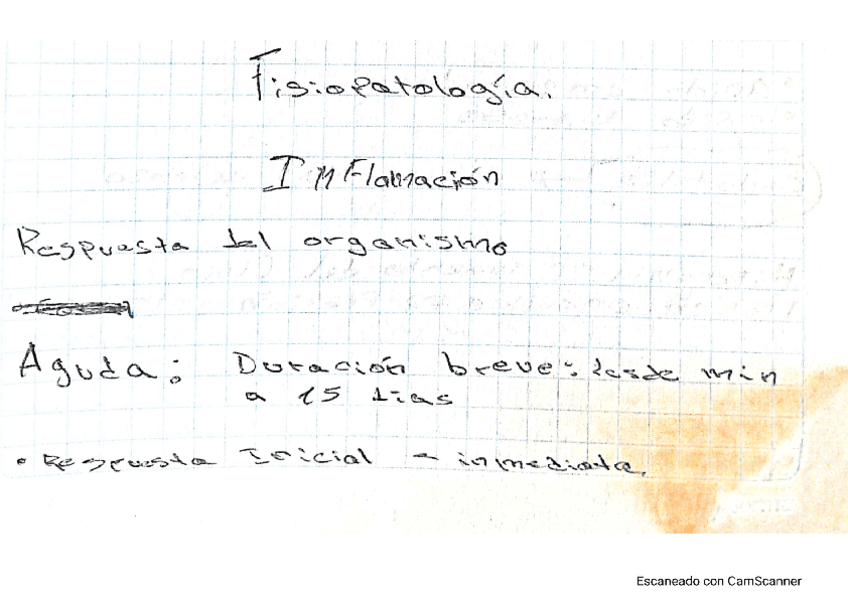 Fisiopatología.
Inflamación
Respuesta del organismo
Aguda: Duración breve: desde min
a 15 dias
• Respuesta Inicial - inmediata.
Escaneado con CamScanner